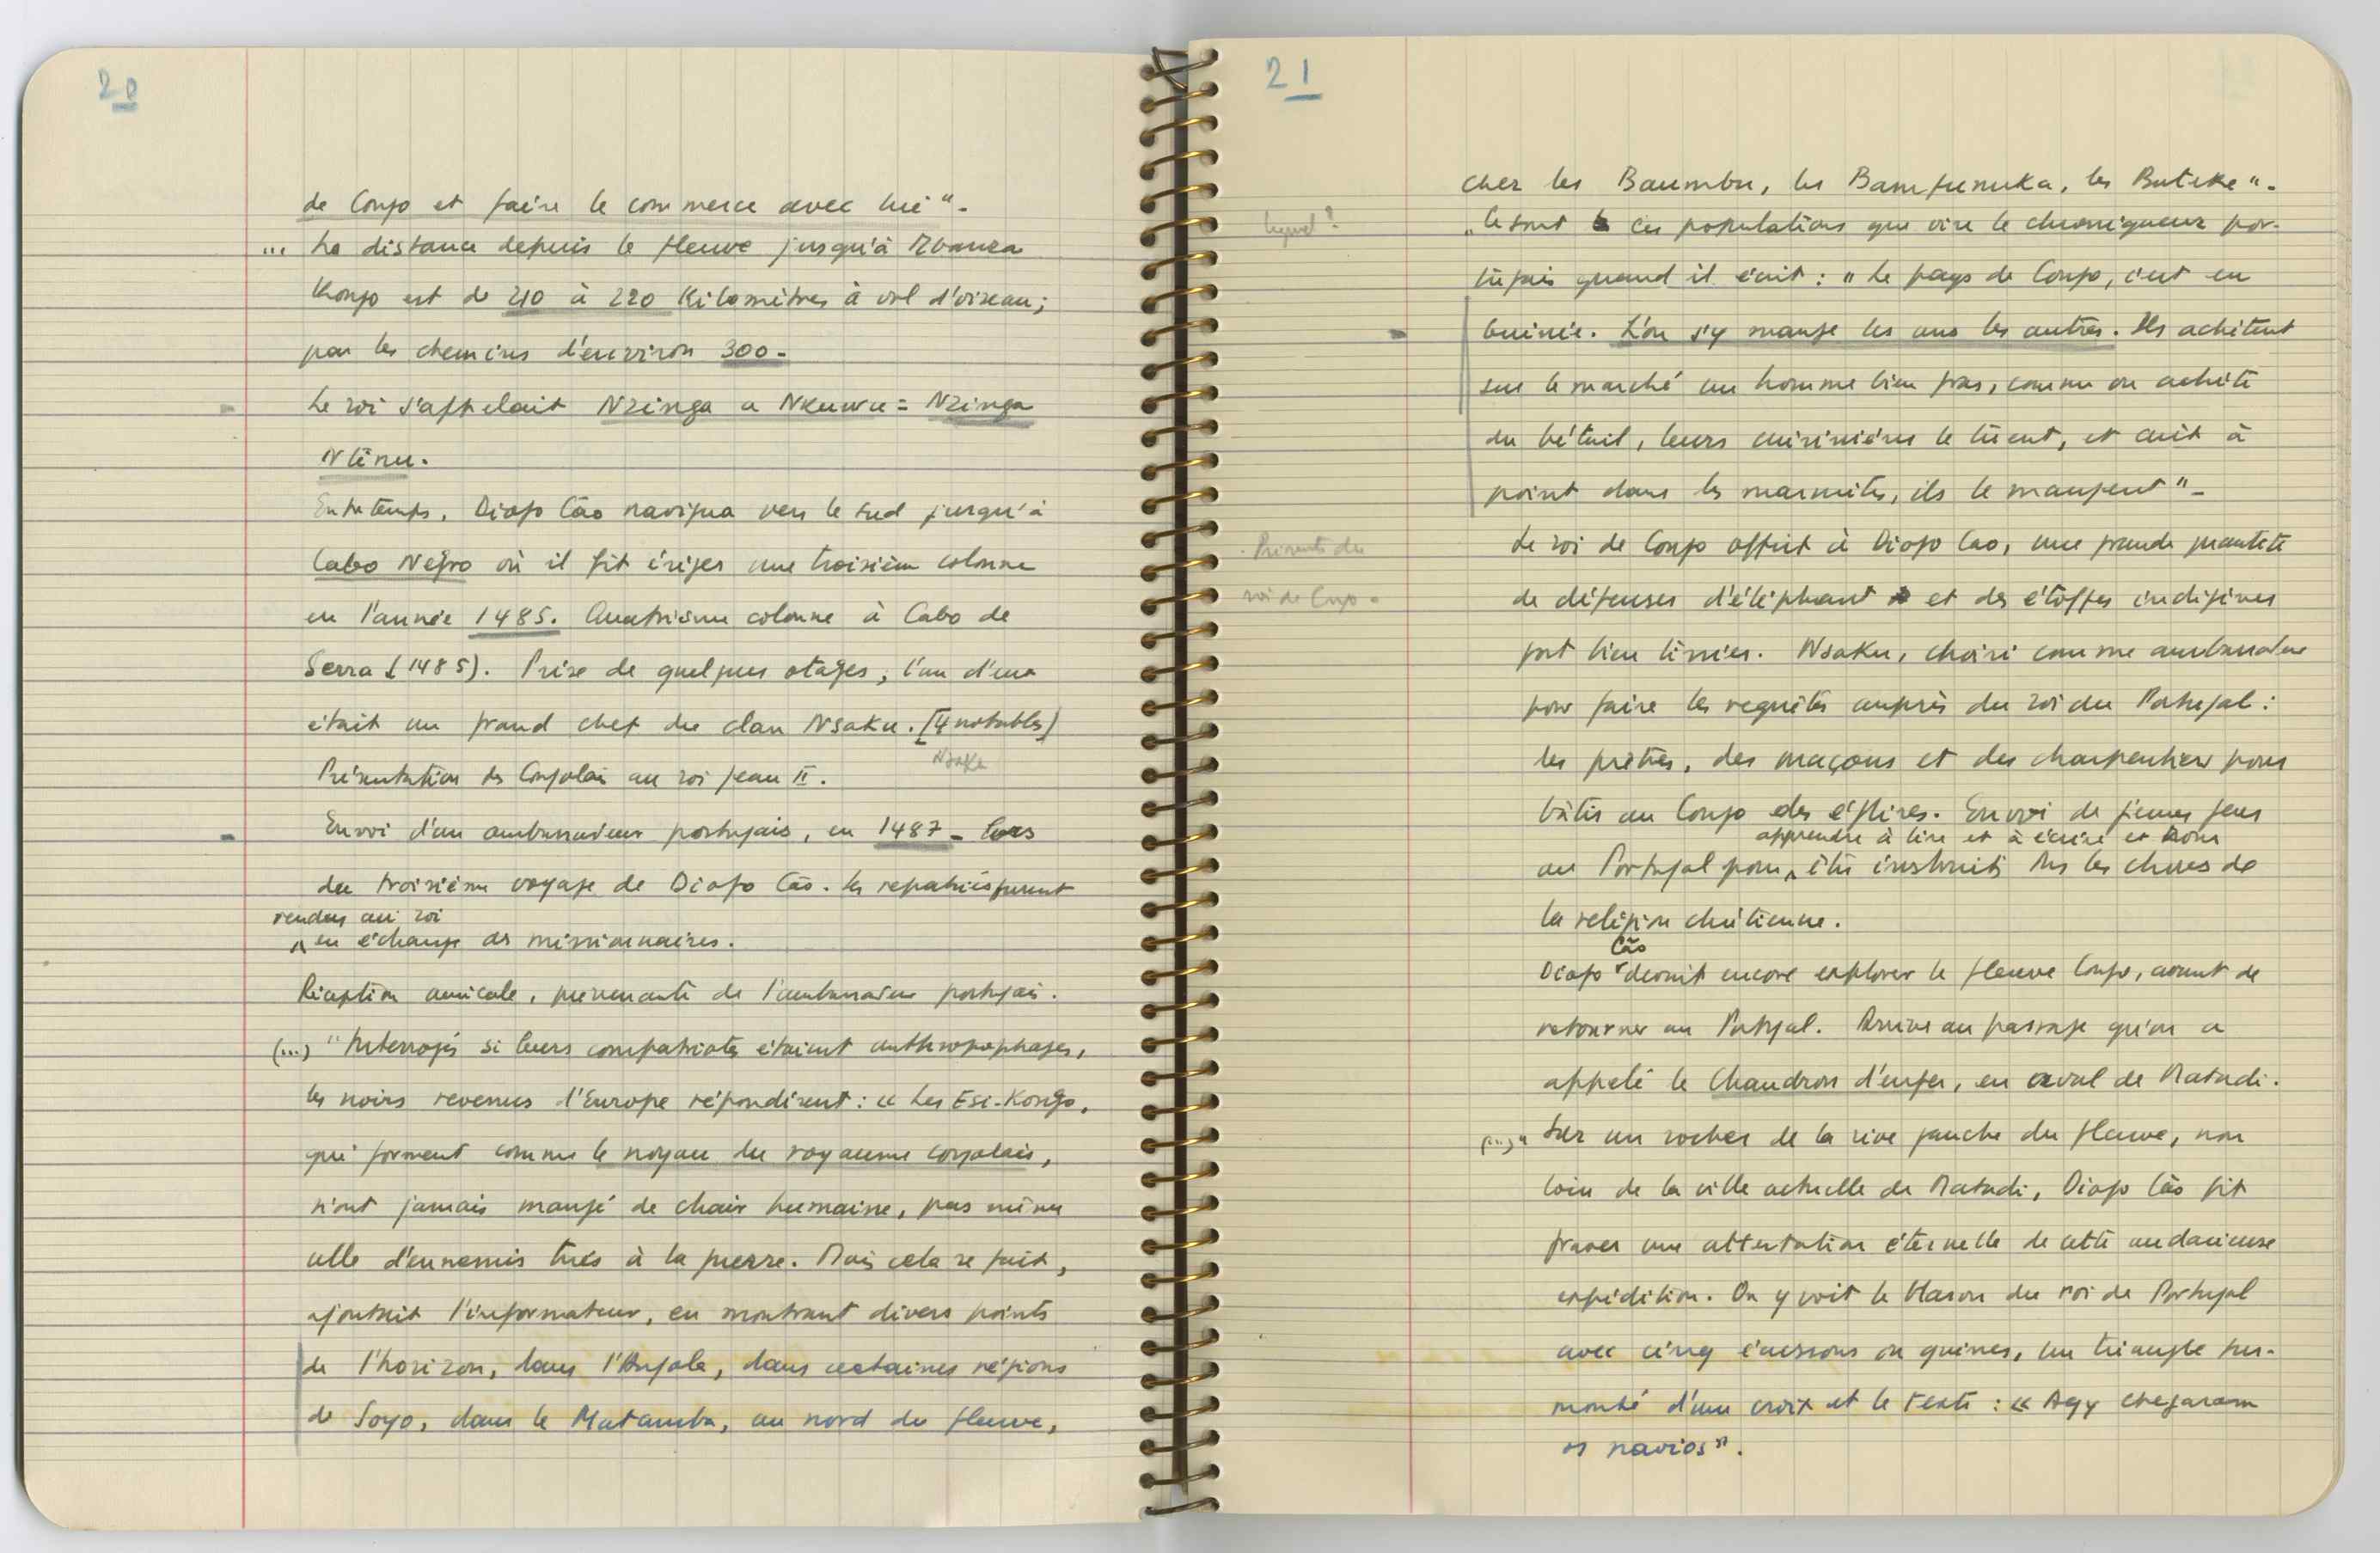 20
de Congo et faire le commerce avec lui".
... La distance depuis le fleuve jusqu'à Mbanza
Kongo est de 210 à 220 Kilomètres à vol d'oiseau;
par les chemins d'environ 300.
Le roi s'appelait Nzinga a Nkuwu = Nzinga
Ntinu.
Entretemps, Diogo Cão navigua vers le sud jusqu'à
Cabo Negro où il fit ériger une troisième colonne
en l'année 1485. Quatrième colonne à Cabo de
Serra (1485). Prise de quelques otages, l'un d'eux
était un grand chef du clan Nsaku. [4 notables]
Nsaku
Présentation des Congolais au roi Jean II.
Envoi d'un ambassadeur portugais, en 1487 - Lors
du troisième voyage de Diogo Cão. Les rapatriés furent
rendus au roi
en échange des missionnaires.
Réception amicale, prévenante de l'ambassadeur portugais.
(...) "Interrogés si leurs compatriotes étaient anthropophages,
les noirs revenus d'Europe répondirent : « Les Esi-Kongo,
qui forment comme le noyau du royaume congolais,
n'ont jamais mangé de chair humaine, pas même
celle d'ennemis tués à la guerre. Mais cela se fait,
ajoutait l'informateur, en montrant divers points
de l'horizon, dans l'Angola, dans certaines régions
de Soyo, dans le Matamba, au nord du fleuve,
21
chez les Baumbu, les Bamfunuka, les Bateke".
lequel?
"Ce sont ces populations que vise le chroniqueur por-
tugais quand il écrit : "Le pays de Congo, c'est en
Guinée. L'on s'y mange les uns les autres. Ils achètent
sur le marché un homme bien gras, comme on achète
du bétail, leurs cuisinières le tuent, et cuit à
point dans les marmites, ils le mangent".
Présents du
roi de Congo.
Le roi de Congo offrit à Diogo Cao, une grande quantité
de défenses d'éléphant et des étoffes indigènes
fort bien tissées. Nsaku, choisi comme ambassadeur
pour faire les requêtes auprès du roi du Portugal :
des prêtres, des maçons et des charpentiers pour
bâtir au Congo des églises. Envoi de jeunes gens
apprendre à lire et à écrire et pour
au Portugal pour être instruits sur les choses de
la religion chrétienne.
Cão
Diogo devait encore explorer le fleuve Congo, avant de
retourner au Portugal. Arrive au passage qu'on a
appelé le Chaudron d'enfer, en aval de Matadi.
(...)" Sur un rocher de la rive gauche du fleuve, non
loin de la ville actuelle de Matadi, Diogo Cão fit
graver une attestation éternelle de cette audacieuse
expédition. On y voit le blason du roi de Portugal
avec cinq écussons ou quines, un triangle sur-
monté d'une croix et le texte : « Aqy chegaram
os navios".